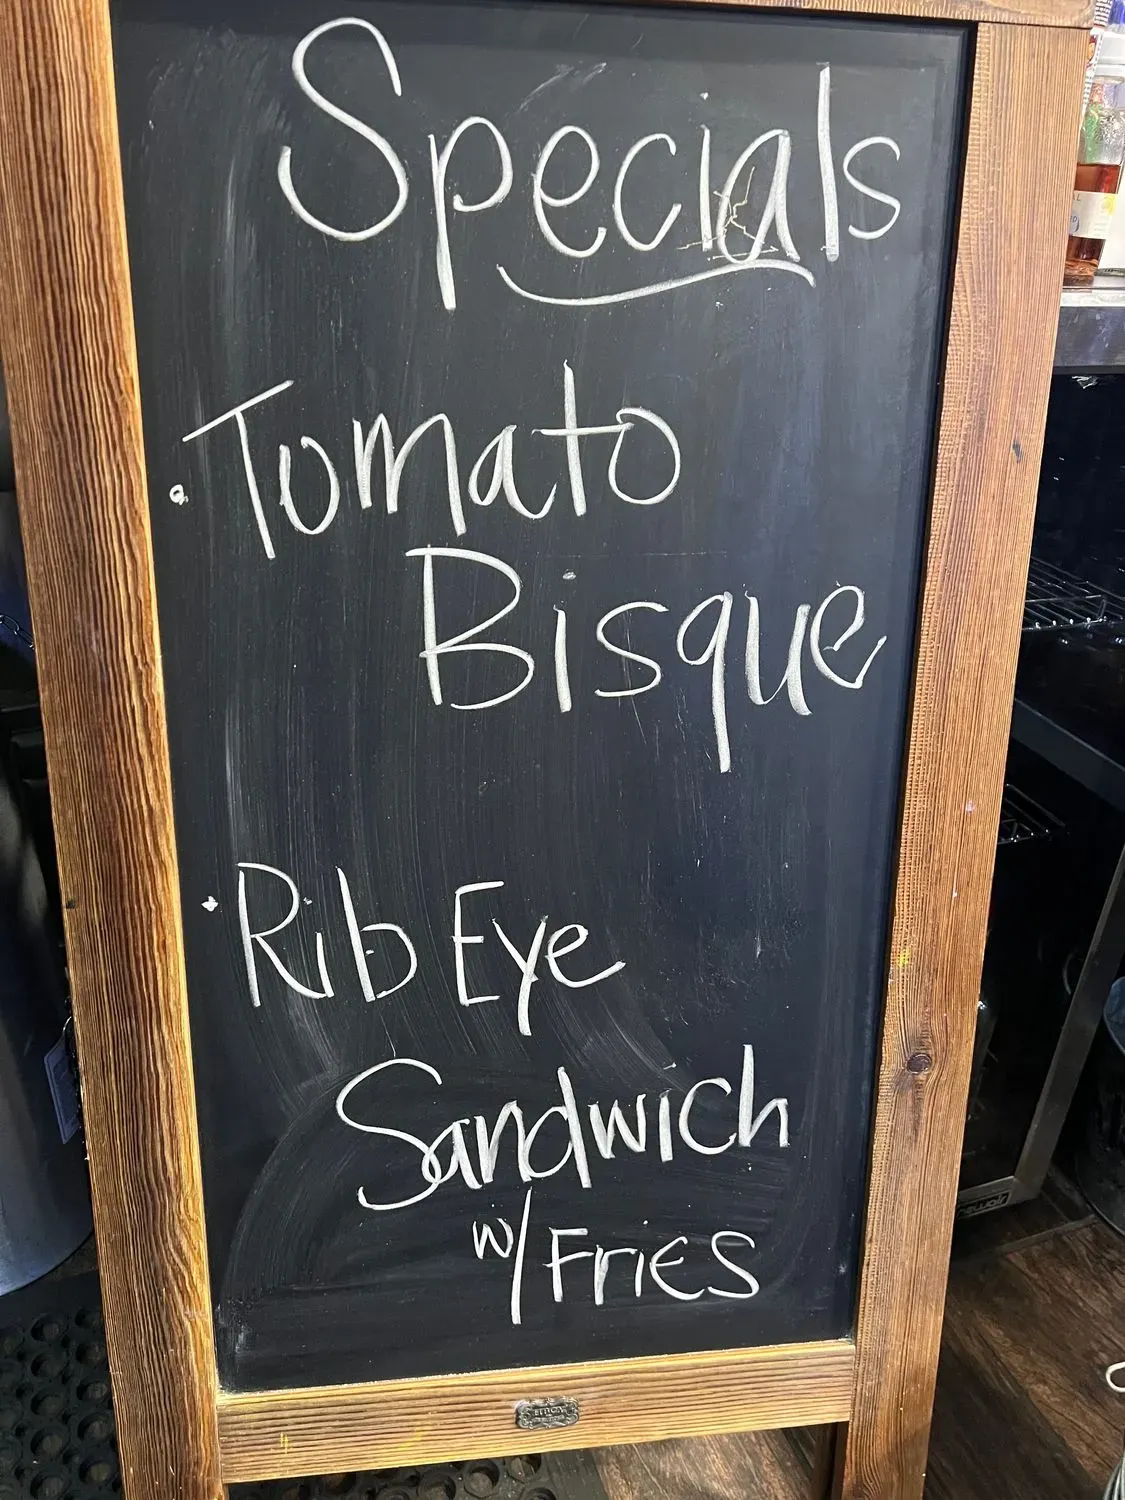 Specials
• Tomato
Bisque
• Rib Eye
Sandwich
w/ Fries